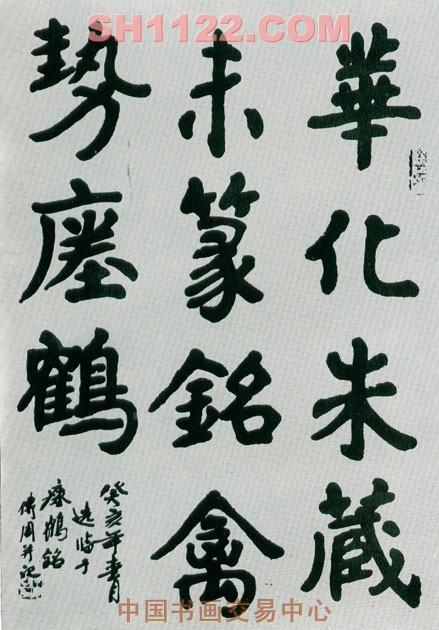 SH1122.COM
華化朱藏
未篆銘禽
勢瘞鶴
癸亥年春月
臨于
瘞鶴銘
周并記
中国书画交易中心